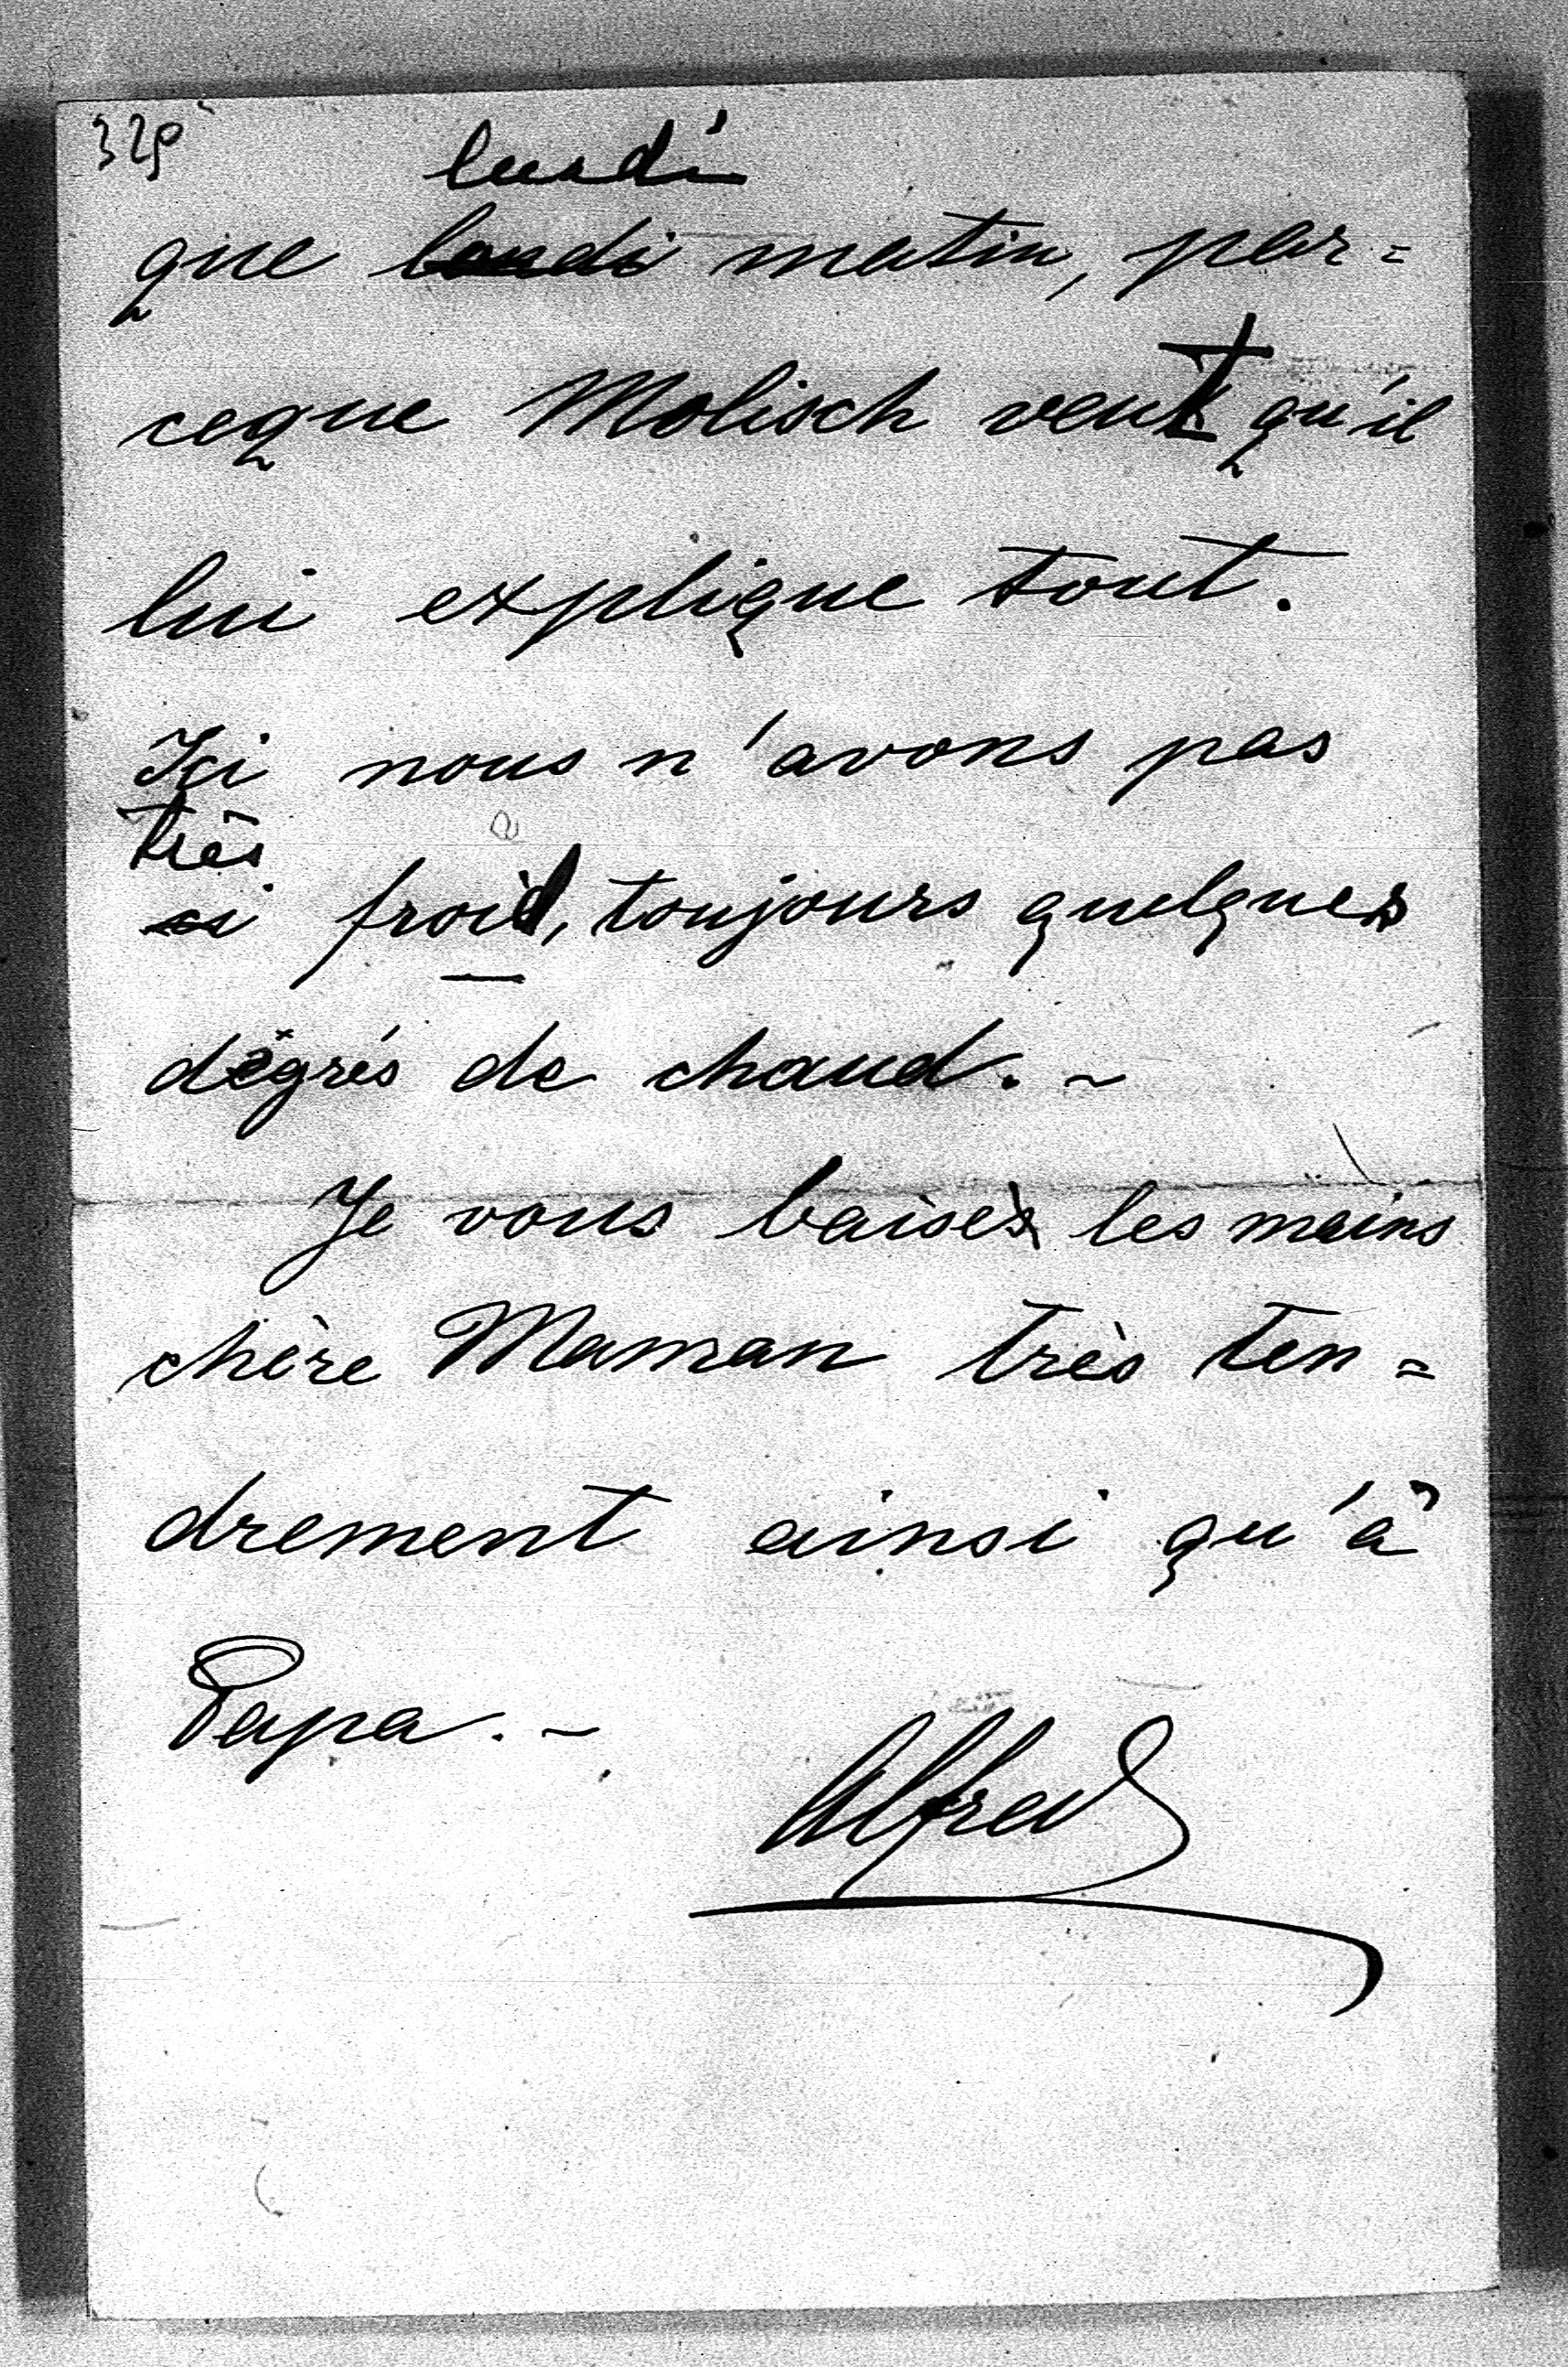 329
lundi
que londi matin, par=
ceque Molisch veut qu'il
lui explique tout.
Ici nous n'avons pas
très
si froid, toujours quelques
dégrés de chaud. -
Je vous baises les mains
chère Maman très ten=
drement ainsi qu'à
Papa. -
Alfred